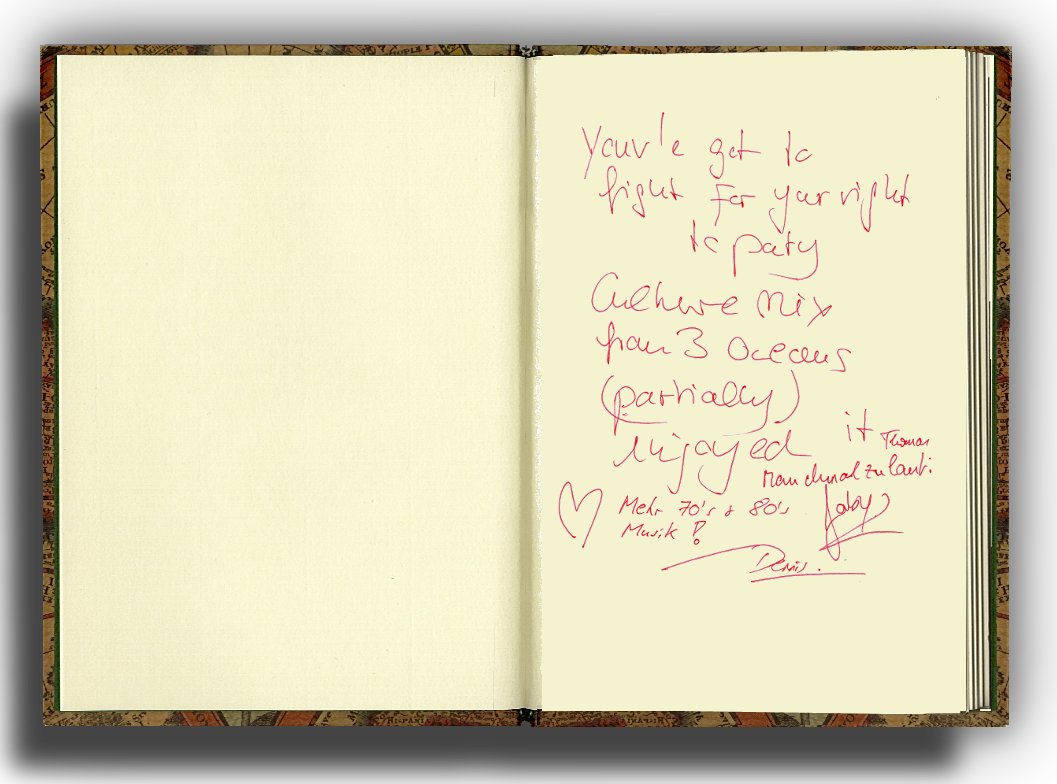 Youv'e got to
fight For your right
to paty
Culture Mix
from 3 Oceans
(partially)
enjoyed it Thomas
Manchmal zu laut!
Gaby
♡ Mehr 70's + 80's
Musik!
Denis.